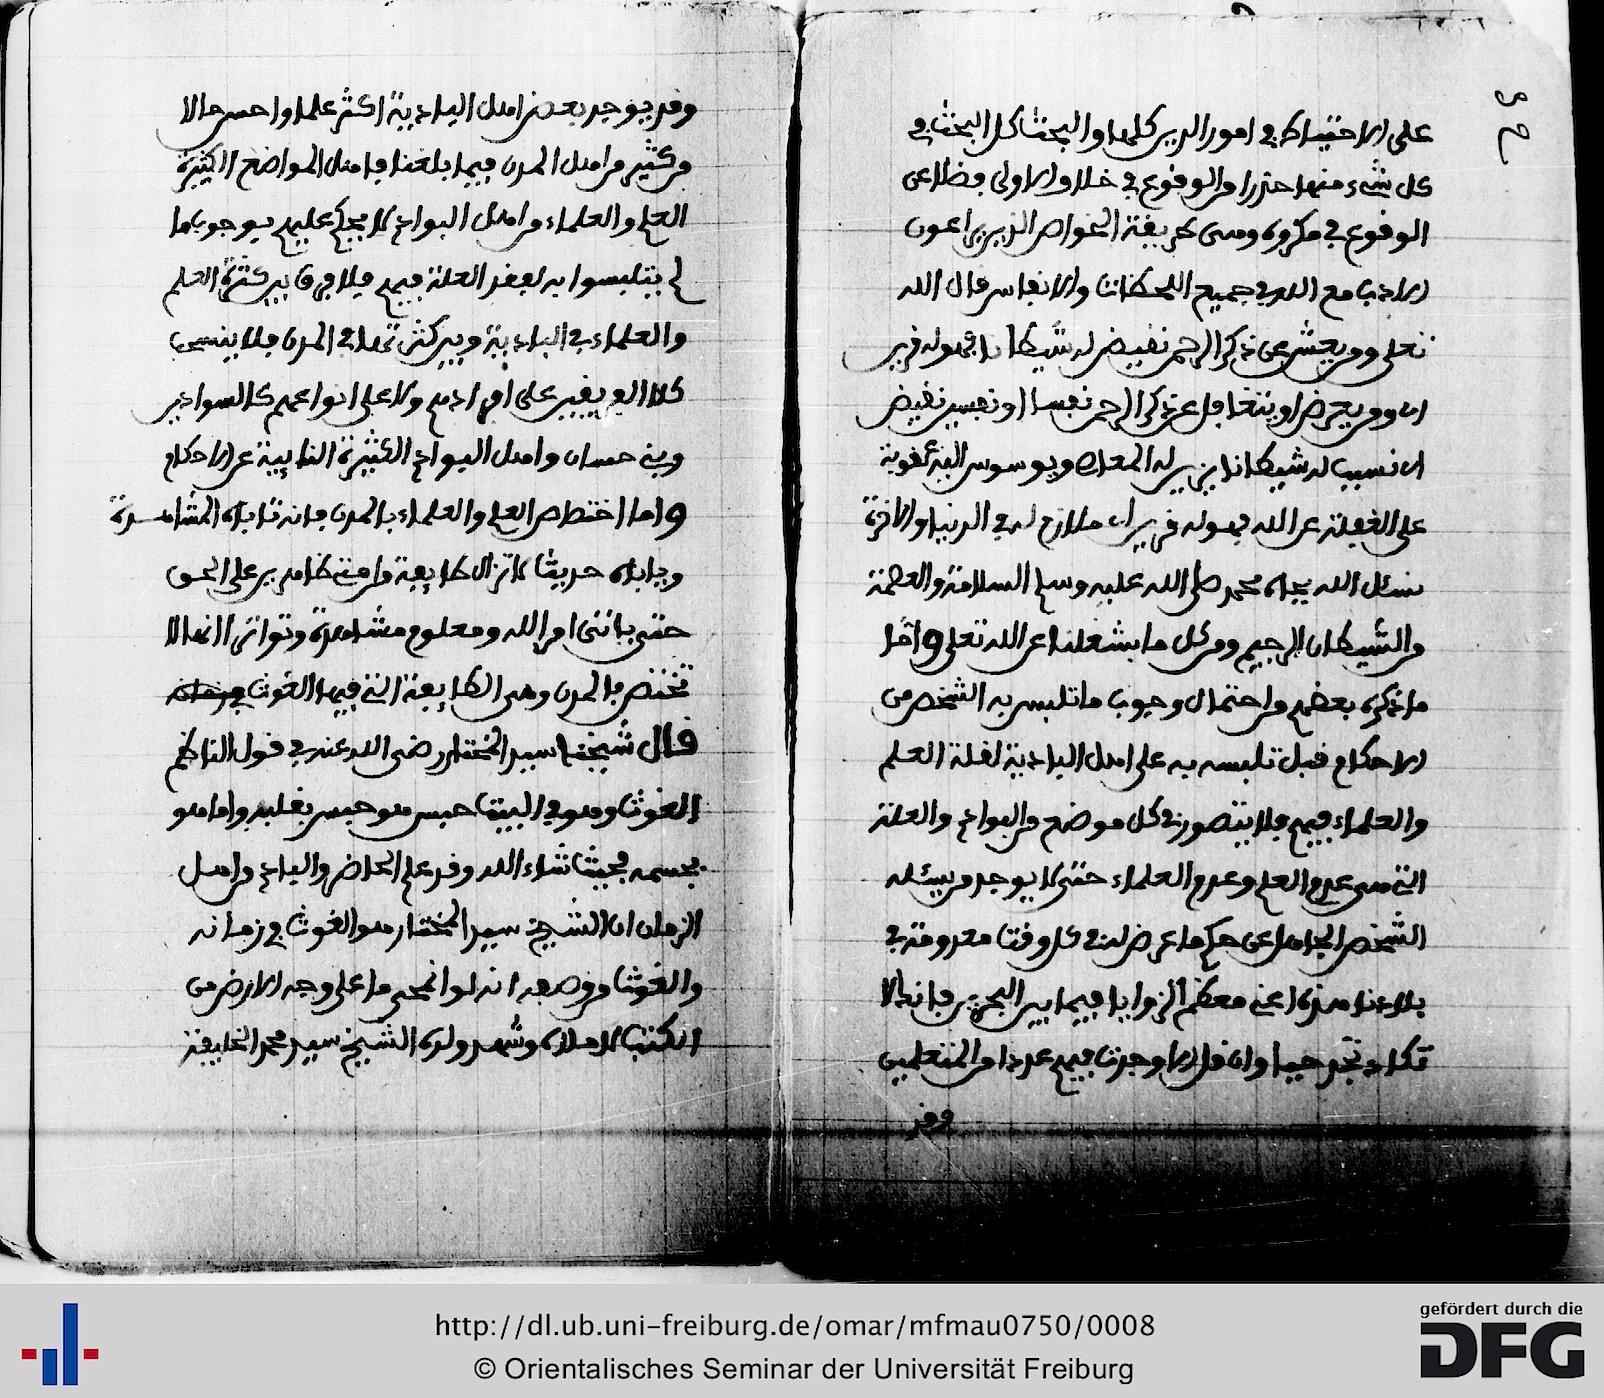 على الاحتياط في امور الدين كلها والبحث كل البحث في
كل شيء منها حذرا من الوقوع في خلاف الاولى فضلا عن
الوقوع في مكروه وهي طريقة الخواص الذين يراعون
الادب مع الله في جميع اللحظات والانفاس قال الله
تعلى ومن يعش عن ذكر الرحمن نقيض له شيطانا فهو له قرين
اي ومن يعرض او يتغافل عن ذكر الرحمن نفسا او نفسين نقيض
اي نسبب له شيطانا يزين له المعاصي ويوسوس
على الغفلة عن الله فهو له قرين اي ملازم له في الدنيا والاخرة
نسئل الله بجاه محمد صلى الله عليه وسلم السلامة والعصمة
من الشيطان الرجيم ومن كل ما يشغلنا عن الله تعلى واما
ما ذكره بعضهم من احتمال وجوب ما تلبس به الشخص من
الاحكام قبل تلبسه به على اهل البادية لقلة العلم
والعلماء فيهم فلا يتصور في كل موضع من البوادي والعلة
التي هي عدم العلم وعدم العلماء حتى لا يوجد من يسئله
الشخص الجاهل عن حكم ما عرض له في كل وقت معدومة في
بلادنا هذه اعني معظم الزوايا فيما بين البحرين فانها لا
تكاد تجد حيا وان قل الا وجدت فيهم عددا من المتعلمين
وقد
وقد يوجد بعض اهل البادية اكثر علما واحسن حالا
من كثير من اهل المدن فيما بلغنا فاهل المواضع الكثيرة
العلم والعلماء من اهل البوادي لا يحكم عليهم بوجوب ما
لم يتلبسوا به لفقد العلة فيهم فلا فرق بين كثرة العلم
والعلماء في البادية وبين كثرتها في المدن فلا ينبغي
على افرادهم ولا على انواعهم كالسوادين
وبني حسان واهل البوادي الكثيرة النائية عن الاحكام
واما اختصاص العلم والعلماء بالمدن فانه تاباه المشاهدة
ويأباه حديث لا تزال طايفة من امتي ظاهرين على الحق
حتى ياتي امر الله ومعلوم مشاهدة وتواترا انها لا
تختص بالمدن وهي الطايفة التي فيها الغوث في زمانه
قال شيخنا سيد المختار رضي الله عنه في قول الناظم
الغوث وهو في البيت حبس هو حبس بقلبه واما هو
بجسمه فحيث شاء الله وقد علم الحاضر والبادي من اهل
الزمان ان الشيخ سيد المختار هو الغوث في زمانه
والغوث من وصفه انه لو انمحى ما على وجه الارض من
الكتب لاملاه وشهد ولده الشيخ سيد محمد الخليفة
http://dl.ub.uni-freiburg.de/omar/mfmau0750/0008
© Orientalisches Seminar der Universität Freiburg
gefördert durch die
DFG